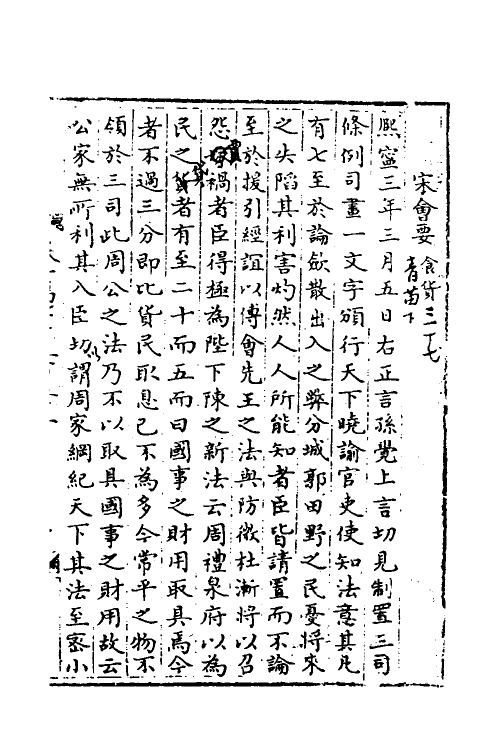 宋會要 食貨三十七
青苗下
熙寧三年三月五日右正言孫覺上言切見制置三司
條例司畫一文字頒行天下曉諭官吏使知法意其凡
有七至於論斂散出入之弊分城郭田野之民憂將來
之失陷其利害灼然人人所能知者臣皆請置而不論
至於援引經誼以傅會先王之法與防微杜漸將以召
怨賈禍者臣得極為陛下陳之新法云周禮泉府以為
民之貸者有至二十而五而曰國事之財用取具焉今
者不過三分即比貸民取息已不為多今常平之物不
領於三司此周公之法乃不以取具國事之財用故云
公家無所利其入臣切以謂周家綱紀天下其法至密小